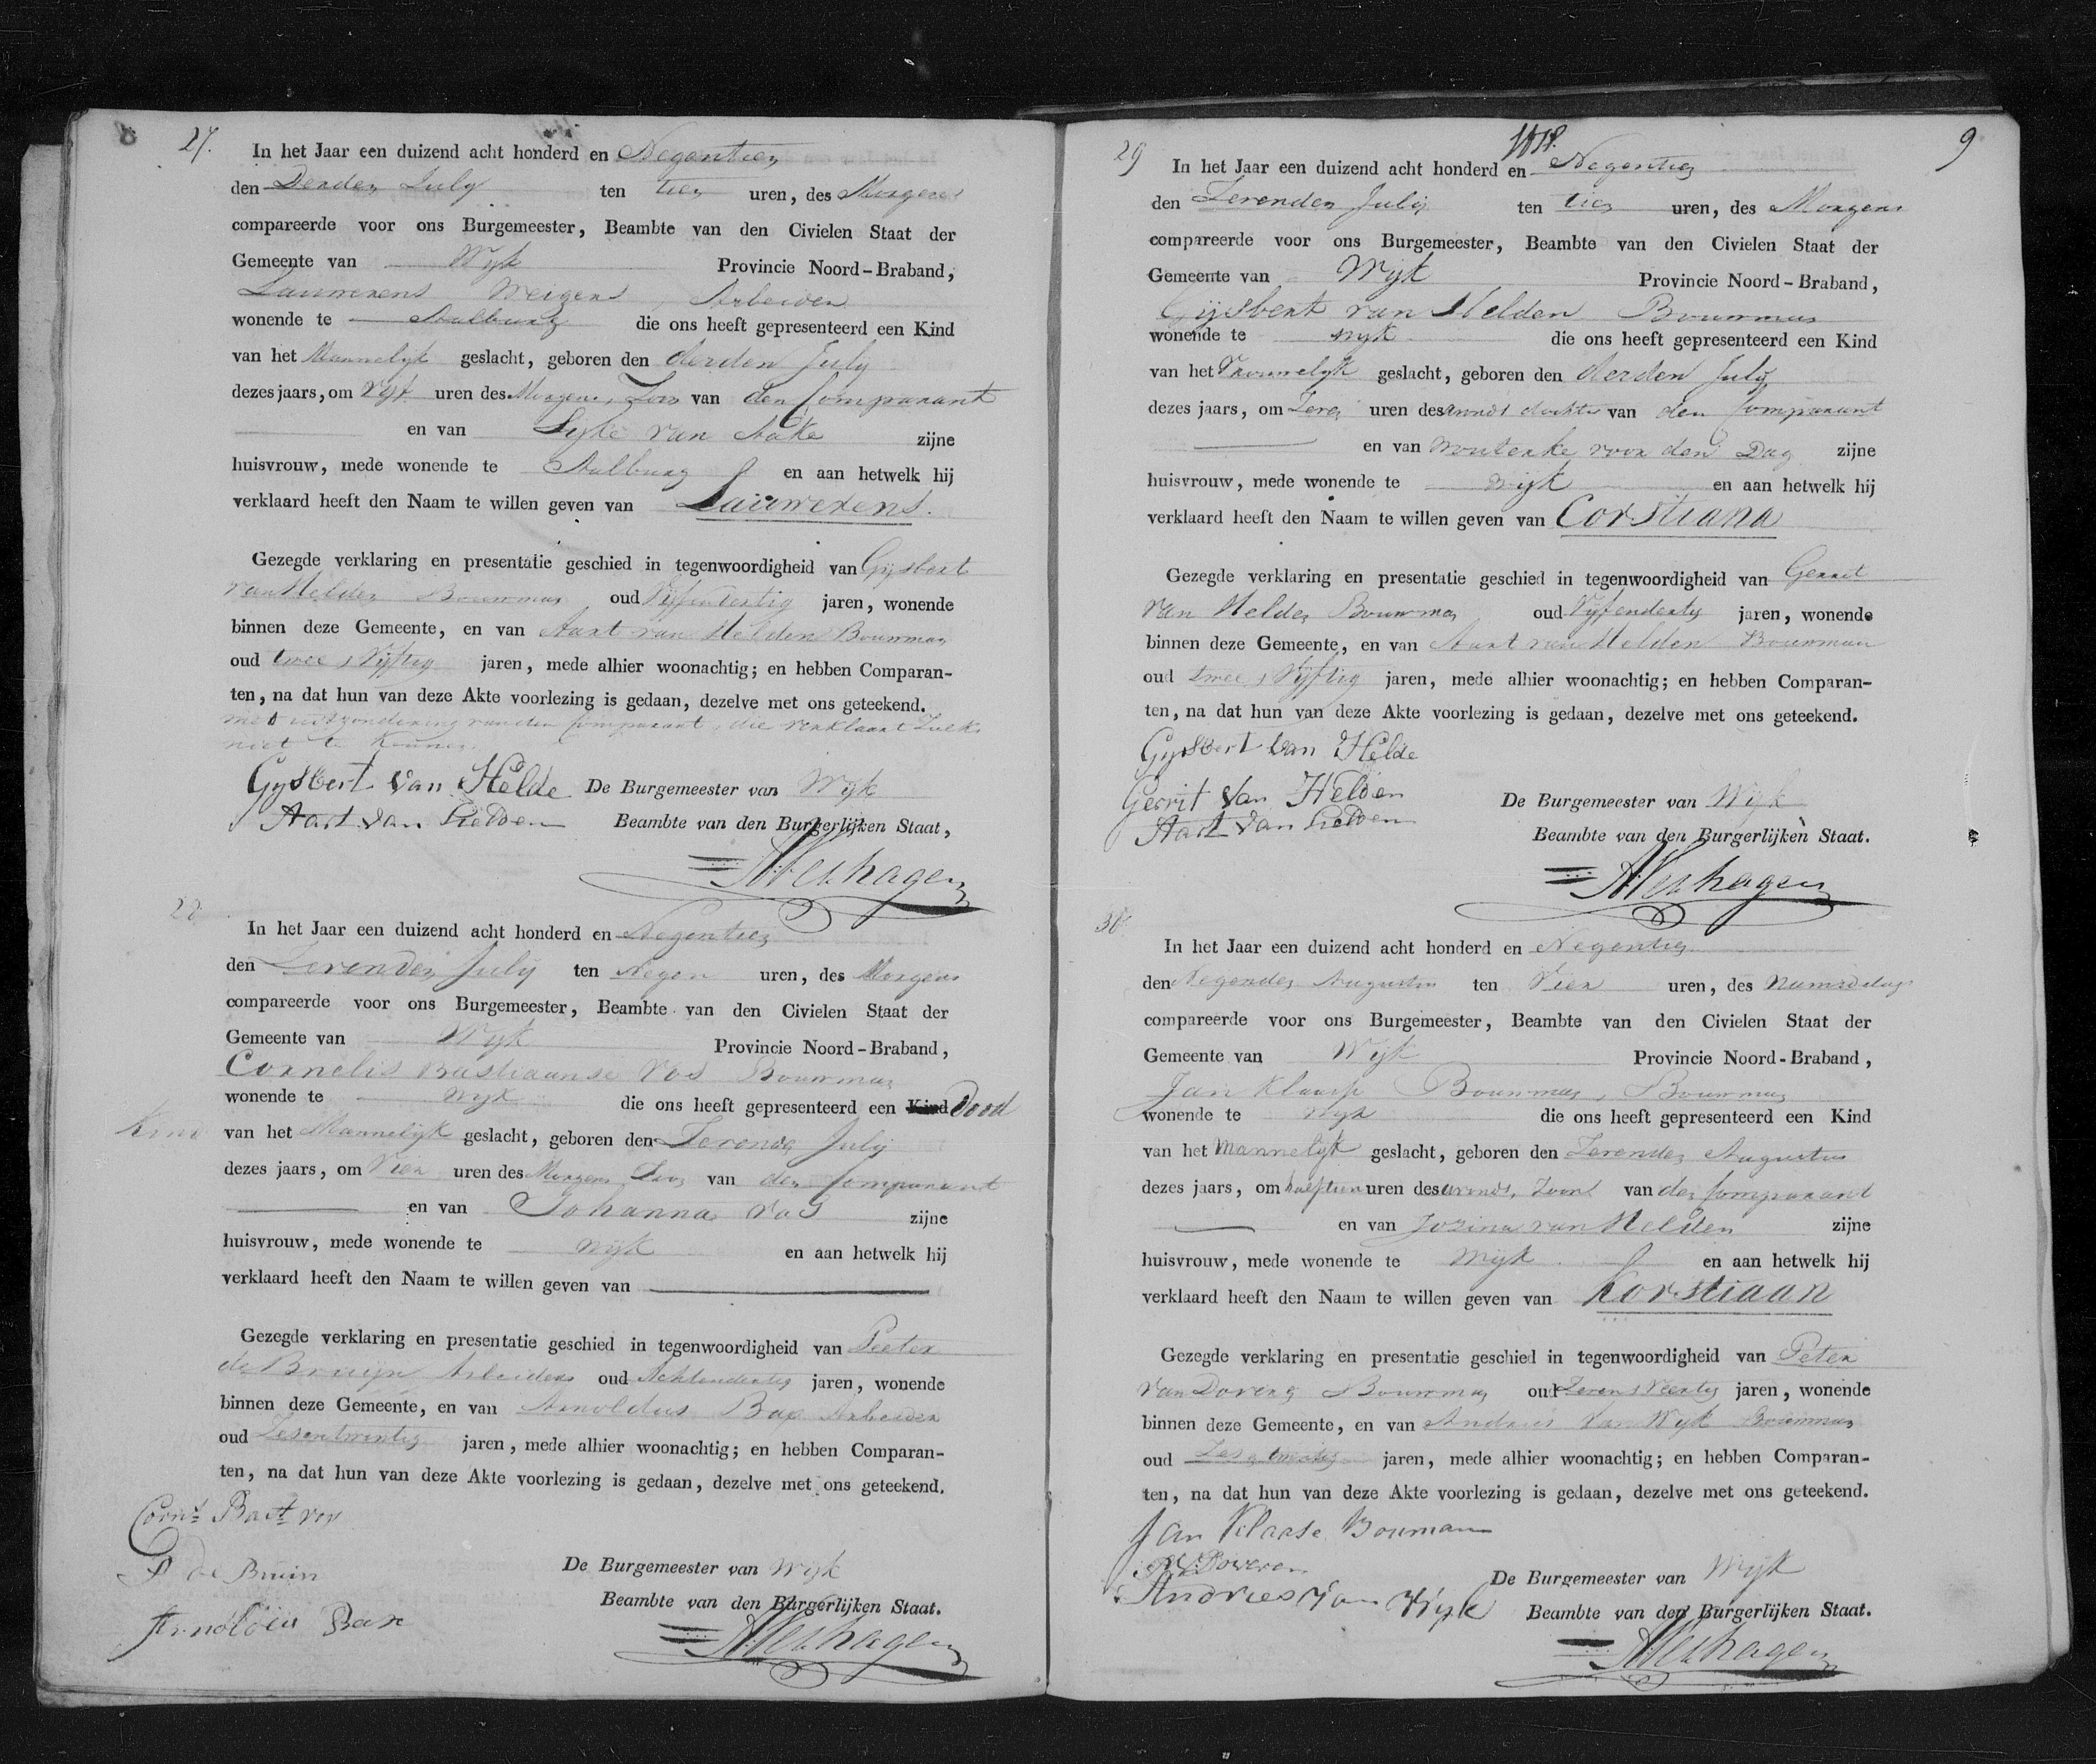 8
27.
In het Jaar een duizend acht honderd en Negentien
den Derden July ten tien uren, des Morgens
compareerde voor ons Burgemeester, Beambte van den Civielen Staat der
Gemeente van Wijk Provincie Noord-Braband,
Lauwerens Weigers, Arbeider
wonende te Aalburg die ons heeft gepresenteerd een Kind
van het Mannelijk geslacht, geboren den derden July
dezes jaars, om Vijf uren des Morgens, Zoon van den Comparant
en van Sijke van Aake zijne
huisvrouw, mede wonende te Aalburg en aan hetwelk hij
verklaard heeft den Naam te willen geven van Lauwerens.
Gezegde verklaring en presentatie geschied in tegenwoordigheid van Gijsbert
van Helden Bouwman oud Vijfendertig jaren, wonende
binnen deze Gemeente, en van Aart van Helden Bouwman
oud twee & Vijftig jaren, mede alhier woonachtig; en hebben Comparan-
ten, na dat hun van deze Akte voorlezing is gedaan, dezelve met ons geteekend.
met uitzondering van den Comparant, die verklaart Zulks
niet te kunnen.
Gysbert van Helde De Burgemeester van Wijk
Aart van Helden Beambte van den Burgerlijken Staat,
Verhagen
28
In het Jaar een duizend acht honderd en Negentien
den Zevenden July ten Negen uren, des Morgens
compareerde voor ons Burgemeester, Beambte van den Civielen Staat der
Gemeente van Wijk Provincie Noord-Braband,
Cornelis Bastiaanse Vos Bouwman
wonende te Wijk die ons heeft gepresenteerd een Kind Dood
Kind van het Mannelijk geslacht, geboren den Zevende July
dezes jaars, om Vier uren des Morgens Zoon van den Comparant
en van Johanna Vos zijne
huisvrouw, mede wonende te Wijk en aan hetwelk hij
verklaard heeft den Naam te willen geven van
Gezegde verklaring en presentatie geschied in tegenwoordigheid van Peeter
de Bruijn Arbeider oud Achtendertig jaren, wonende
binnen deze Gemeente, en van Arnoldus Bax Arbeider
oud Zesentwintig jaren, mede alhier woonachtig; en hebben Comparan-
ten, na dat hun van deze Akte voorlezing is gedaan, dezelve met ons geteekend.
Corns Bast vos
P de Bruin
De Burgemeester van Wijk
Beambte van den Burgerlijken Staat.
Arnoldus Bax
Verhagen
1819.
9
29
In het Jaar een duizend acht honderd en Negentien
den Zevenden July ten tien uren, des Morgens
compareerde voor ons Burgemeester, Beambte van den Civielen Staat der
Gemeente van Wijk Provincie Noord-Braband,
Gijsbert van Helden Bouwman
wonende te Wijk die ons heeft gepresenteerd een Kind
van het Vrouwelijk geslacht, geboren den derden July
dezes jaars, om Zeven uren des avonds dochter van den Comparant
en van Wouterke voor den Dag zijne
huisvrouw, mede wonende te Wijk en aan hetwelk hij
verklaard heeft den Naam te willen geven van Corstiana
Gezegde verklaring en presentatie geschied in tegenwoordigheid van Gerrit
van Helden Bouwman oud Vijfendertig jaren, wonende
binnen deze Gemeente, en van Aart van Helden Bouwman
oud twee & Vijftig jaren, mede alhier woonachtig; en hebben Comparan-
ten, na dat hun van deze Akte voorlezing is gedaan, dezelve met ons geteekend.
Gysbert van Helde
Gerrit van Helden De Burgemeester van Wijk
Aart van Helden Beambte van den Burgerlijken Staat.
Verhagen
30.
In het Jaar een duizend acht honderd en Negentien
den Negenden Augustus ten Vier uren, des Namiddags
compareerde voor ons Burgemeester, Beambte van den Civielen Staat der
Gemeente van Wijk Provincie Noord-Braband,
Jan Klaasse Bouwman, Bouwman
wonende te Wijk die ons heeft gepresenteerd een Kind
van het Mannelijk geslacht, geboren den Zevenden Augustus
dezes jaars, om half tien uren des avonds, Zoon van den Comparant
en van Jozina van Helden zijne
huisvrouw, mede wonende te Wijk en aan hetwelk hij
verklaard heeft den Naam te willen geven van Korstiaan
Gezegde verklaring en presentatie geschied in tegenwoordigheid van Peter
van Doveren Bouwman oud Zeven & Veertig jaren, wonende
binnen deze Gemeente, en van Andries van Wijk Bouwman
oud jaren, mede alhier woonachtig; en hebben Comparan-
ten, na dat hun van deze Akte voorlezing is gedaan, dezelve met ons geteekend.
Jan Klaase Bouman
P V Doveren
De Burgemeester van Wijk
Andries van Wijk Beambte van den Burgerlijken Staat.
Verhagen